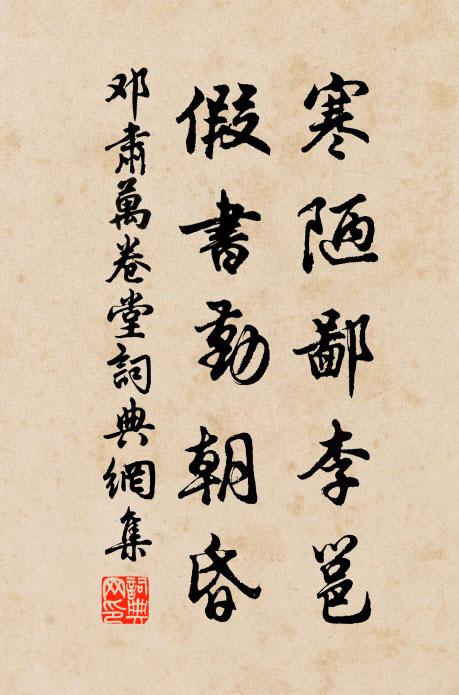 寒陋鄙李邕
假書勤朝昏
邓肅萬卷堂詞典網集
詞典网印